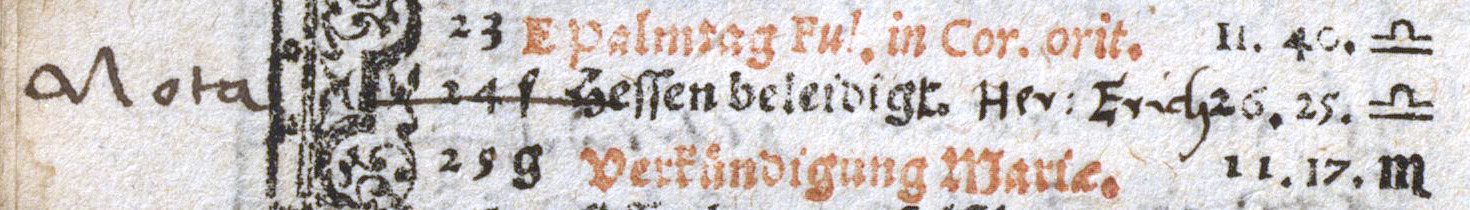 23 E Palmtag Ful. in Cor. orit. 11. 40. ♎
Nota 24 f Hessen beleidigt. Her: Erich 26. 25. ♎
25 g Verkündigung Mariæ. 11. 17. ♏